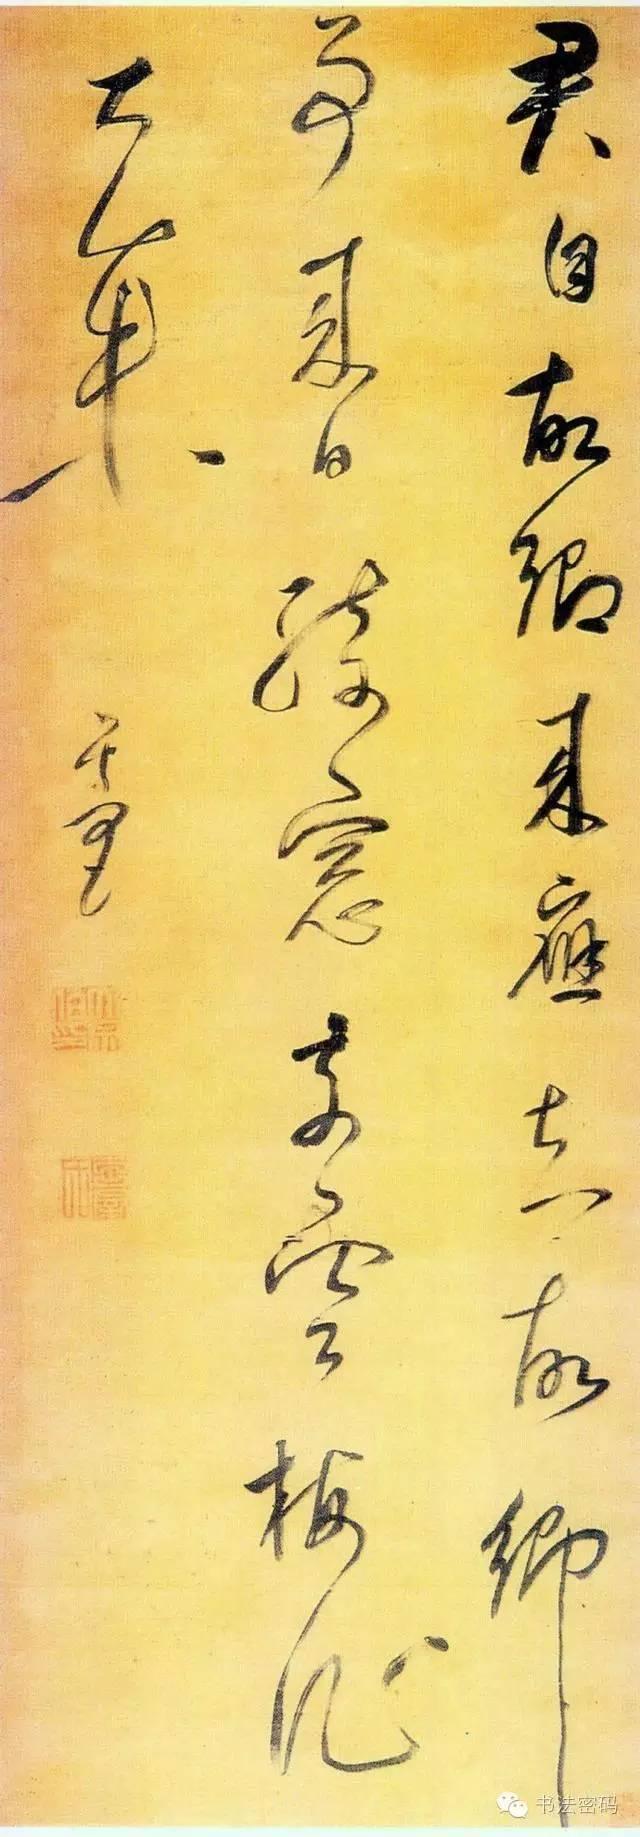 君自故鄉來應知故鄉
事來日綺窓前寒梅花
著未
其昌
书法密码